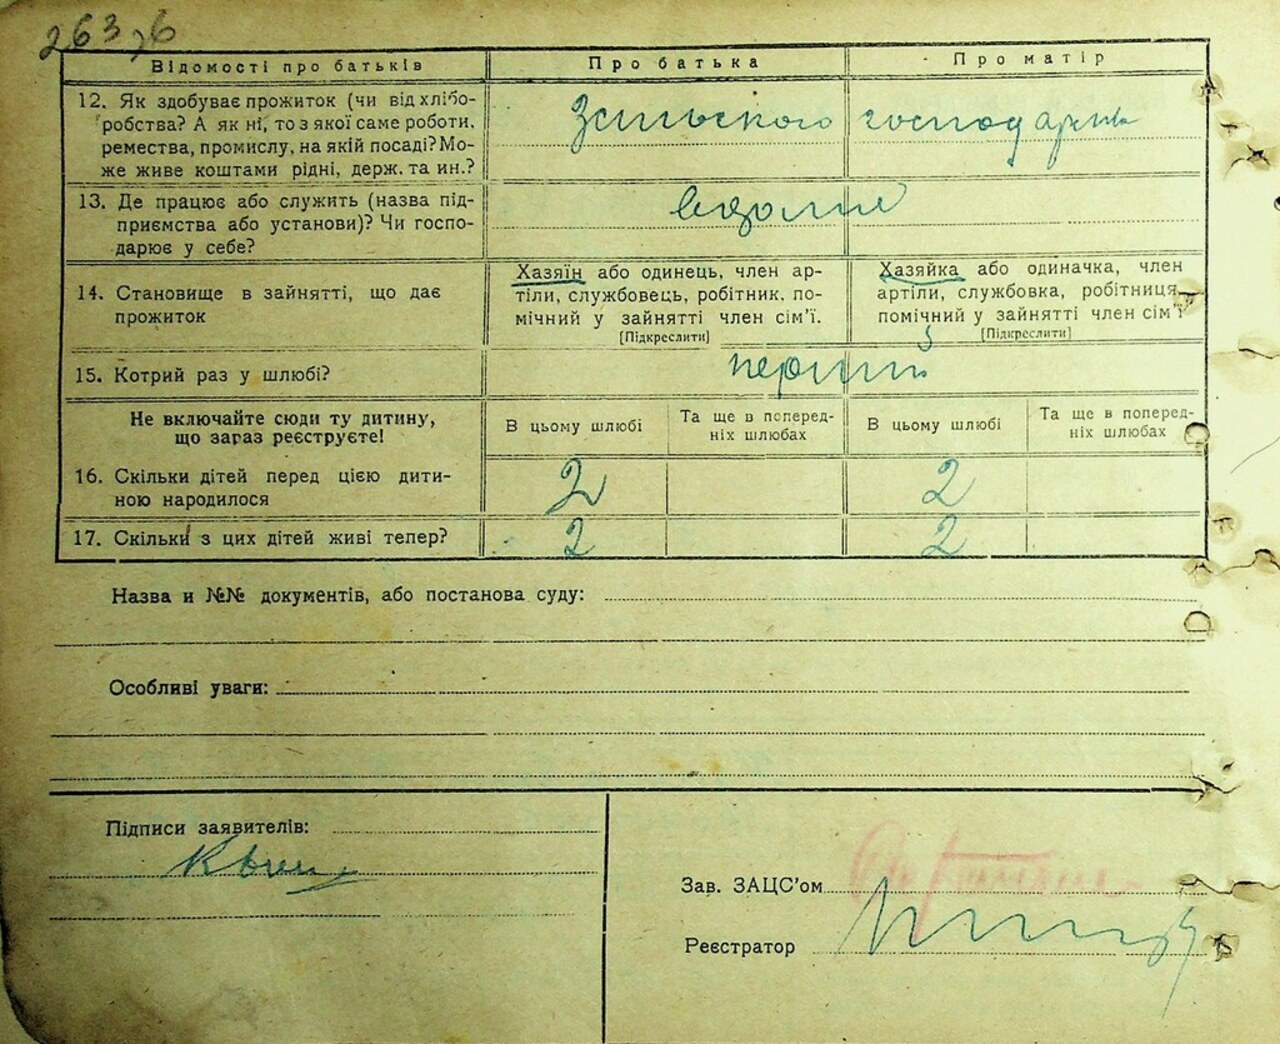 263 26
Відомості про батьків
Про батька
Про матір
12. Як здобуває прожиток (чи від хлібо-
робства? А як ні, то з якої саме роботи,
ремества, промислу, на якій посаді? Мо-
же живе коштами рідні, держ. та ин.?
господарки
13. Де працює або служить (назва під-
приємства або установи)? Чи госпо-
дарює у себе?
14. Становище в зайнятті, що дає
прожиток
Хазяїн або одинець, член ар-
тіли, службовець, робітник, по-
мічний у зайнятті член сім'ї.
[Підкреслити]
Хазяйка або одиначка, член
артіли, службовка, робітниця,
помічний у зайнятті член сім'ї
[Підкреслити]
15. Котрий раз у шлюбі?
перший
Не включайте сюди ту дитину,
що зараз реєструєте!
В цьому шлюбі
Та ще в поперед-
ніх шлюбах
В цьому шлюбі
Та ще в поперед-
ніх шлюбах
16. Скільки дітей перед цією дити-
ною народилося
2
2
17. Скільки з цих дітей живі тепер?
2
2
Назва и №№ документів, або постанова суду:
Особливі уваги:
Підписи заявителів:
Зав. ЗАЦС'ом
Реєстратор